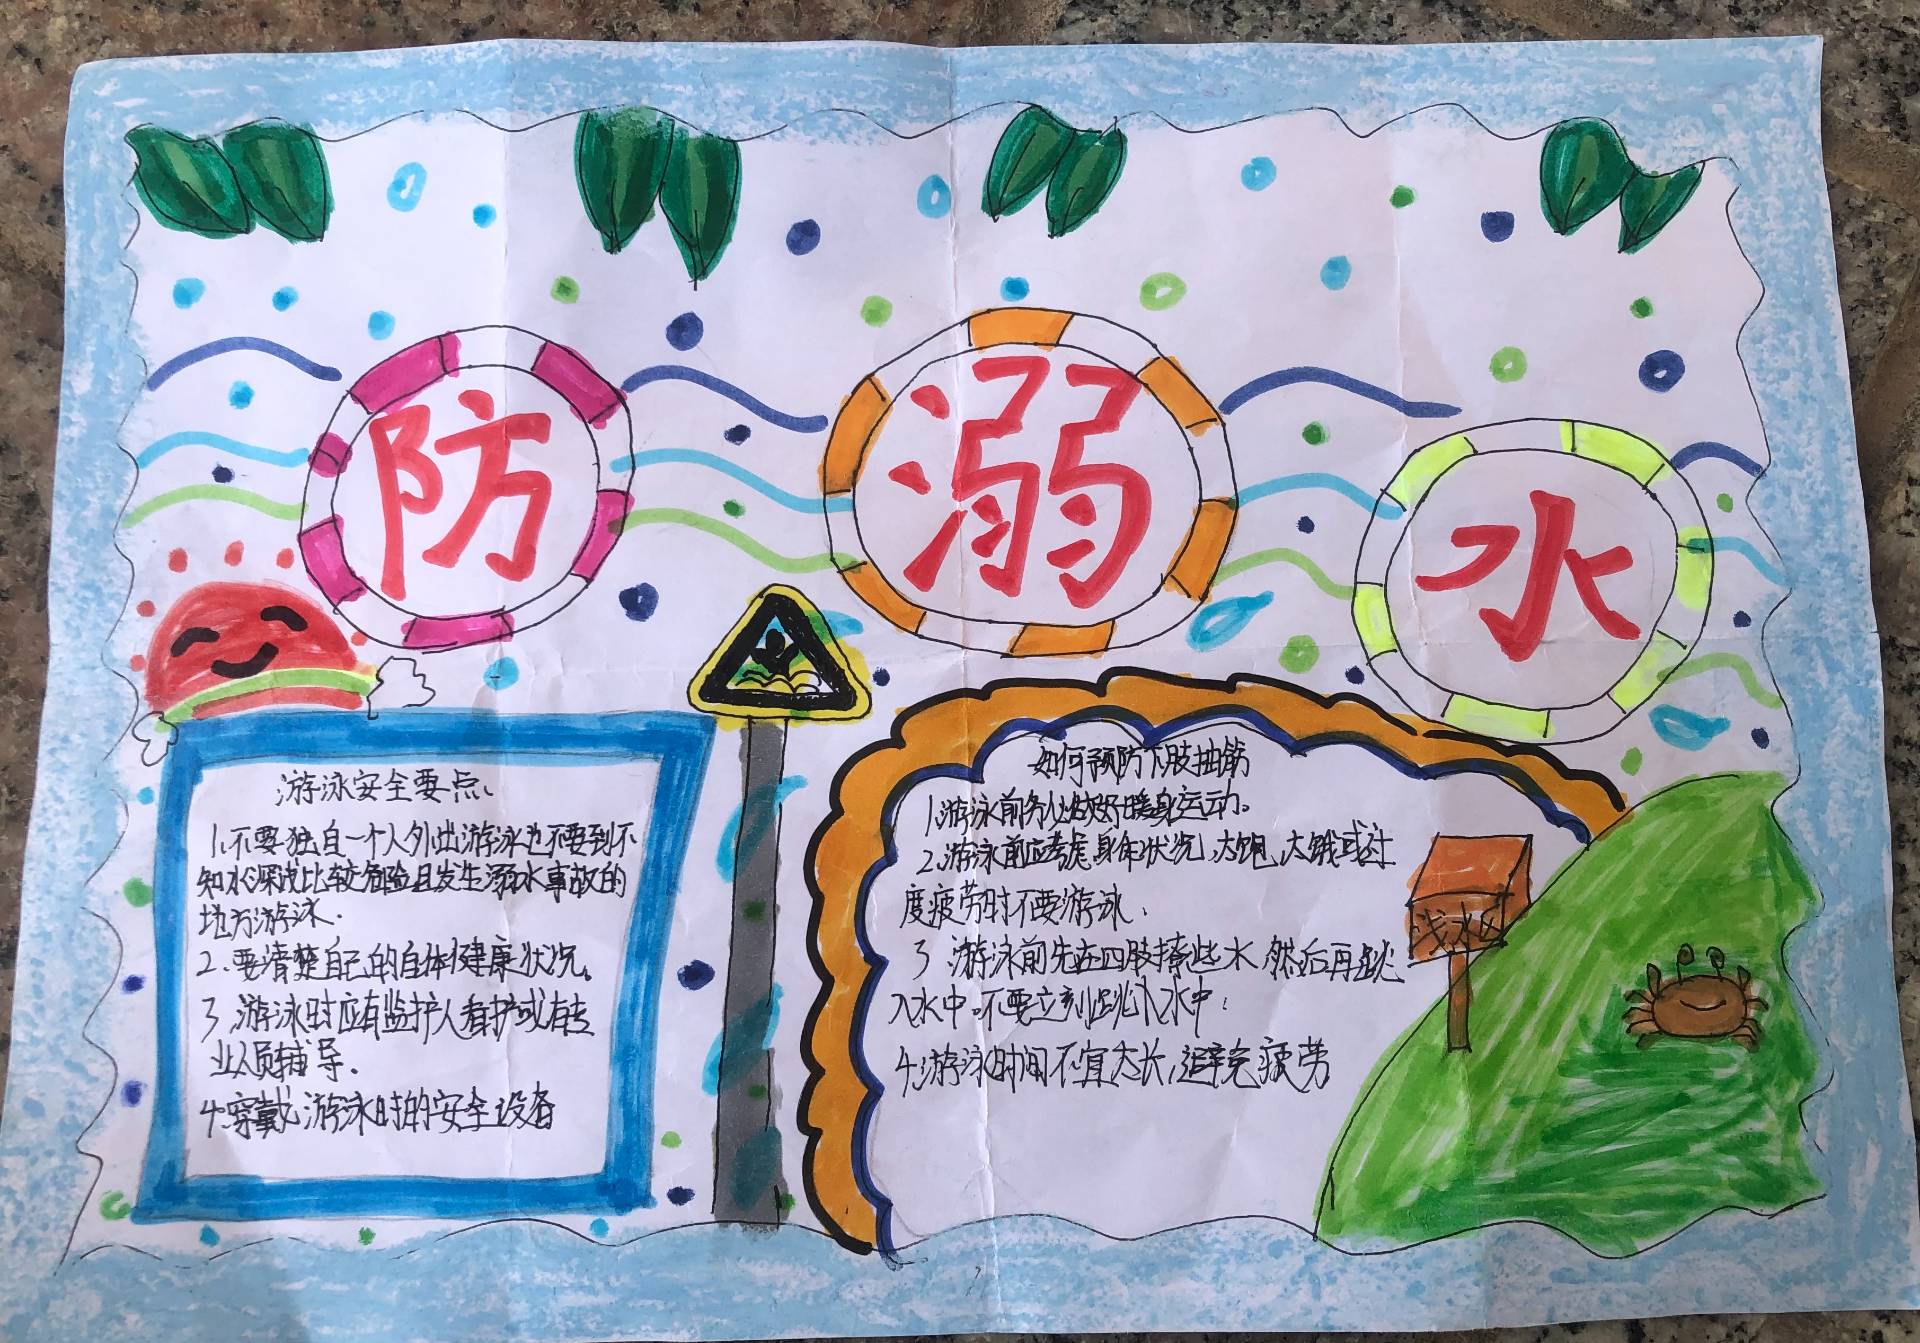 防
溺
水
游泳安全要点、
1、不要独自一个人外出游泳也不要到不
知水深浅比较危险且发生溺水事故的
地方游泳.
2、要清楚自己的自体健康状况。
3、游泳时应有监护人看护或有专
业人员辅导.
4、穿戴、游泳时的安全设备
如何预防下肢抽筋
1、游泳前务必做好暖身运动。
2、游泳前应考虑身体状况,太饱,太饿或过
度疲劳时不要游泳、
3、游泳前先在四肢撩些水,然后再跳
入水中.不要立刻跳入水中;
4、游泳时间不宜太长,避免疲劳
浅水区